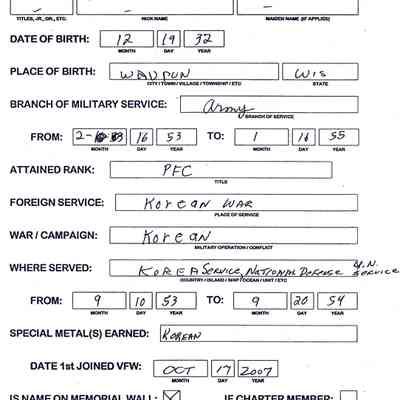 TITLES, -JR., DR., ETC. NICK NAME MAIDEN NAME (IF APPLIES)
DATE OF BIRTH: 12 19 32
MONTH DAY YEAR
PLACE OF BIRTH: WAUPUN WIS
CITY / TOWN / VILLAGE / TOWNSHIP / ETC STATE
BRANCH OF MILITARY SERVICE: Army
BRANCH OF SERVICE
FROM: 2- 16 53 TO: 1 55
MONTH DAY YEAR MONTH DAY YEAR
ATTAINED RANK: PFC
TITLE
FOREIGN SERVICE: Korean WAR
PLACE OF SERVICE
WAR / CAMPAIGN: Korean
MILITARY OPERATION / CONFLICT
WHERE SERVED: KOREA Service, National Defense U.N. SERVICE
(COUNTRY / ISLAND / SHIP / OCEAN / UNIT / ETC)
FROM: 9 10 53 TO: 9 20 54
MONTH DAY YEAR MONTH DAY YEAR
SPECIAL METAL(S) EARNED: KOREAN
DATE 1st JOINED VFW: OCT 17 2007
MONTH DAY YEAR
IS NAME ON MEMORIAL WALL: IF CHARTER MEMBER: